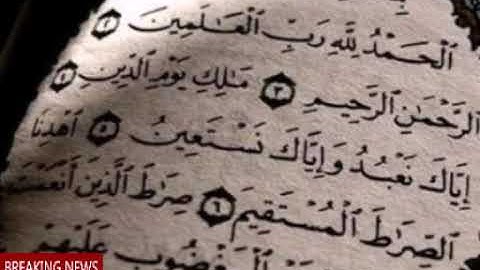 ٱلْحَمْدُ لِلَّهِ رَبِّ ٱلْعَٰلَمِينَ ٢
ٱلرَّحْمَٰنِ ٱلرَّحِيمِ ٣ مَٰلِكِ يَوْمِ ٱلدِّينِ ٤
إِيَّاكَ نَعْبُدُ وَإِيَّاكَ نَسْتَعِينُ ٥ ٱهْدِنَا
ٱلصِّرَٰطَ ٱلْمُسْتَقِيمَ ٦ صِرَٰطَ ٱلَّذِينَ أَنْعَمْتَ
عَلَيْهِمْ ٱلْمَغْضُوبِ
BREAKING NEWS